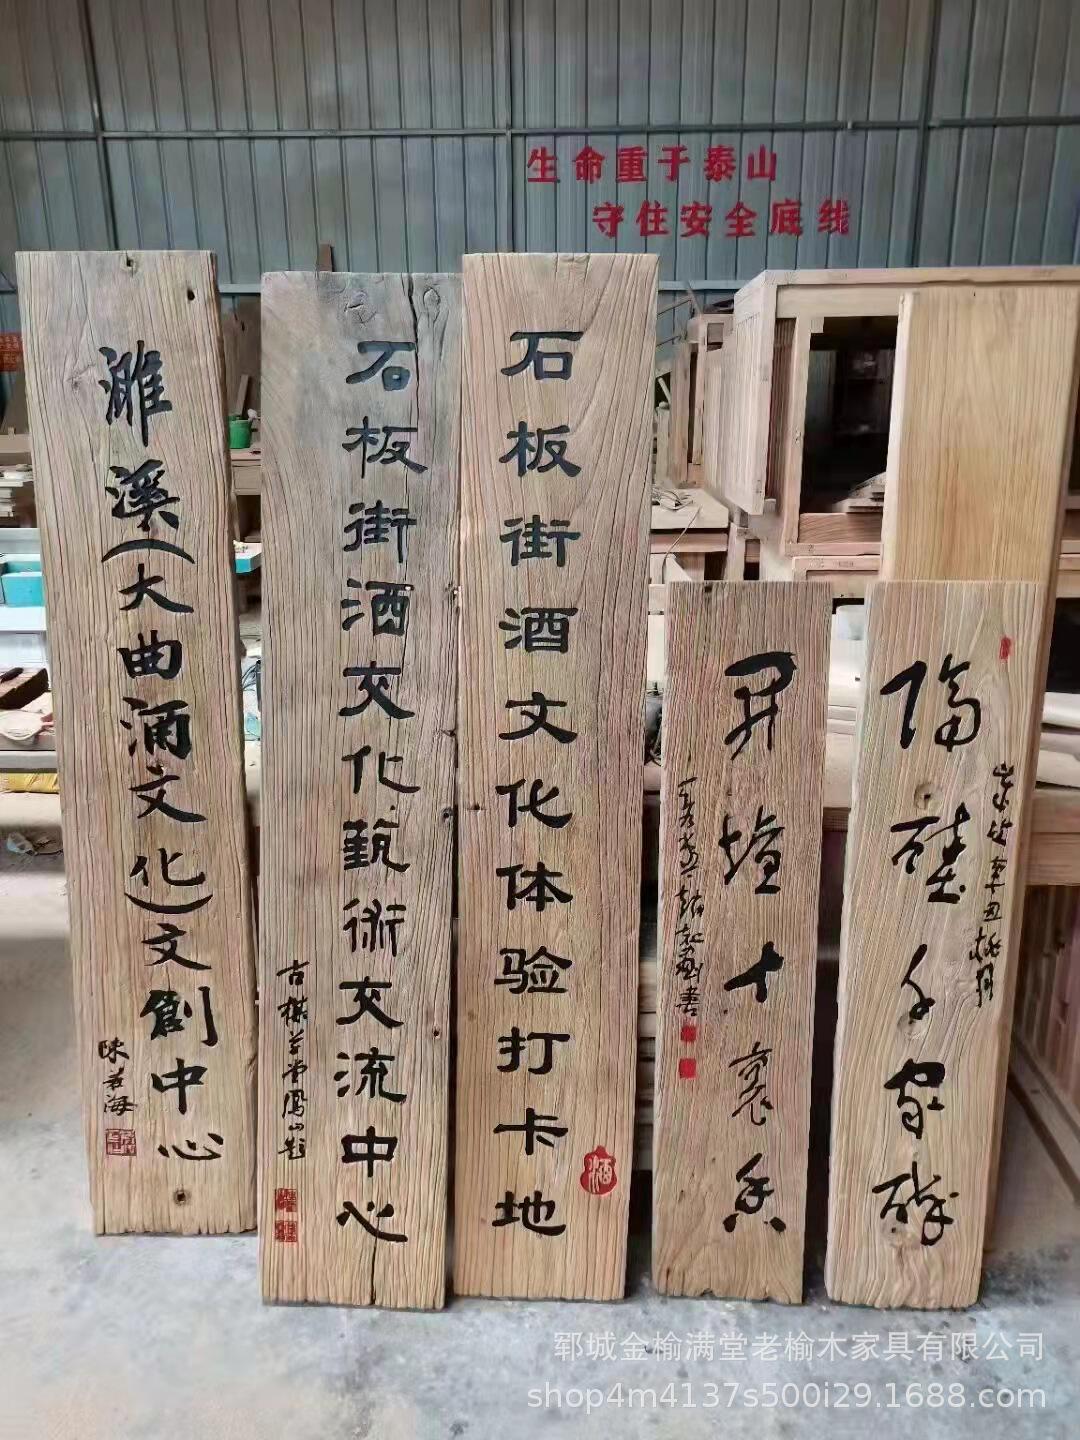 生命重于泰山
守住安全底线
濉溪（大曲涌文化）文創中心
石板街酒文化藝術交流中心
古棋学堂鳳山题
石板街酒文化体验打卡地
酒
開壇十里香
隔壁千家醉
郓城金榆满堂老榆木家具有限公司
shop4m4137s500i29.1688.com